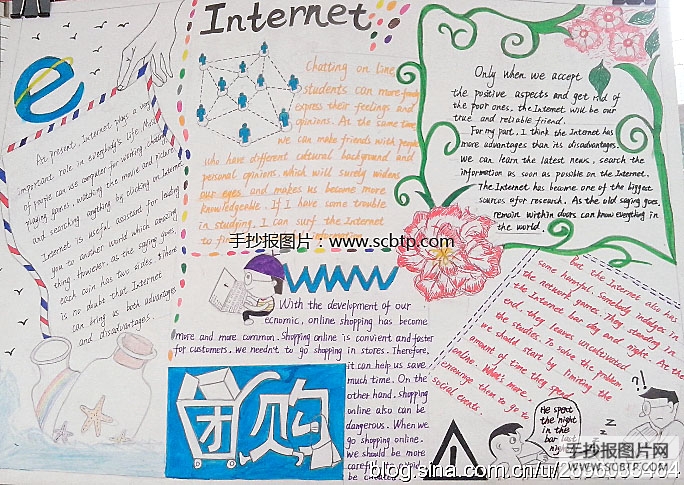 Internet
As present, Internet plays a very
important role in everybody's life. Most
of people can use computer for working, chatting,
playing games, watching the movie and pictures
and searching anything by clicking on Internet.
Internet is useful assistance for leading
you to another world which amazing
thing. However, as the saying goes,
each coin has two sides, there
is no doubt that Internet
can bring us both advantages
and disadvantages.
Chatting on line
students can more freely
express their feelings and
opinions. At the same time,
we can make friends with people
who have different cultural background and
personal opinions, which will surely widens
our eyes and makes us become more
knowledgeable. If I have some trouble
in studying, I can surf the Internet
to find information
手抄报图片：www.scbtp.com
Only when we accept
the positive aspects and get rid of
the poor ones, the Internet will be our
true and reliable friend.
For my part, I think the Internet has
more advantages than its disadvantages.
we can learn the latest news, search the
information as soon as possible on the Internet.
The Internet has become one of the biggest
sources of for research. As the old saying goes,
remain within doors can know everything in
the world.
WWW
With the development of our
ecnomic, online shopping has become
more and more common. Shopping online is convient and faster
for customers, we needn't to go shopping in stores. Therefore,
it can help us save
much time. On the
other hand, shopping
online also can be
dangerous. When we
go shopping online,
we should be more
careful to avoid
be cheated.
团购
But, the Internet also has
some harmful. Somebody indulges in
the network games. They standing in
the Internet bar day and night. At the
end, they leaves uncultivated
the studies. To solve the problem,
we should start by limiting the
amount of time they spend
online. What's more,
encourage them to go to
social events.
He spent
the night
in the
bar last
night
?!
z
手抄报图片网
WWW.SCBTP.COM